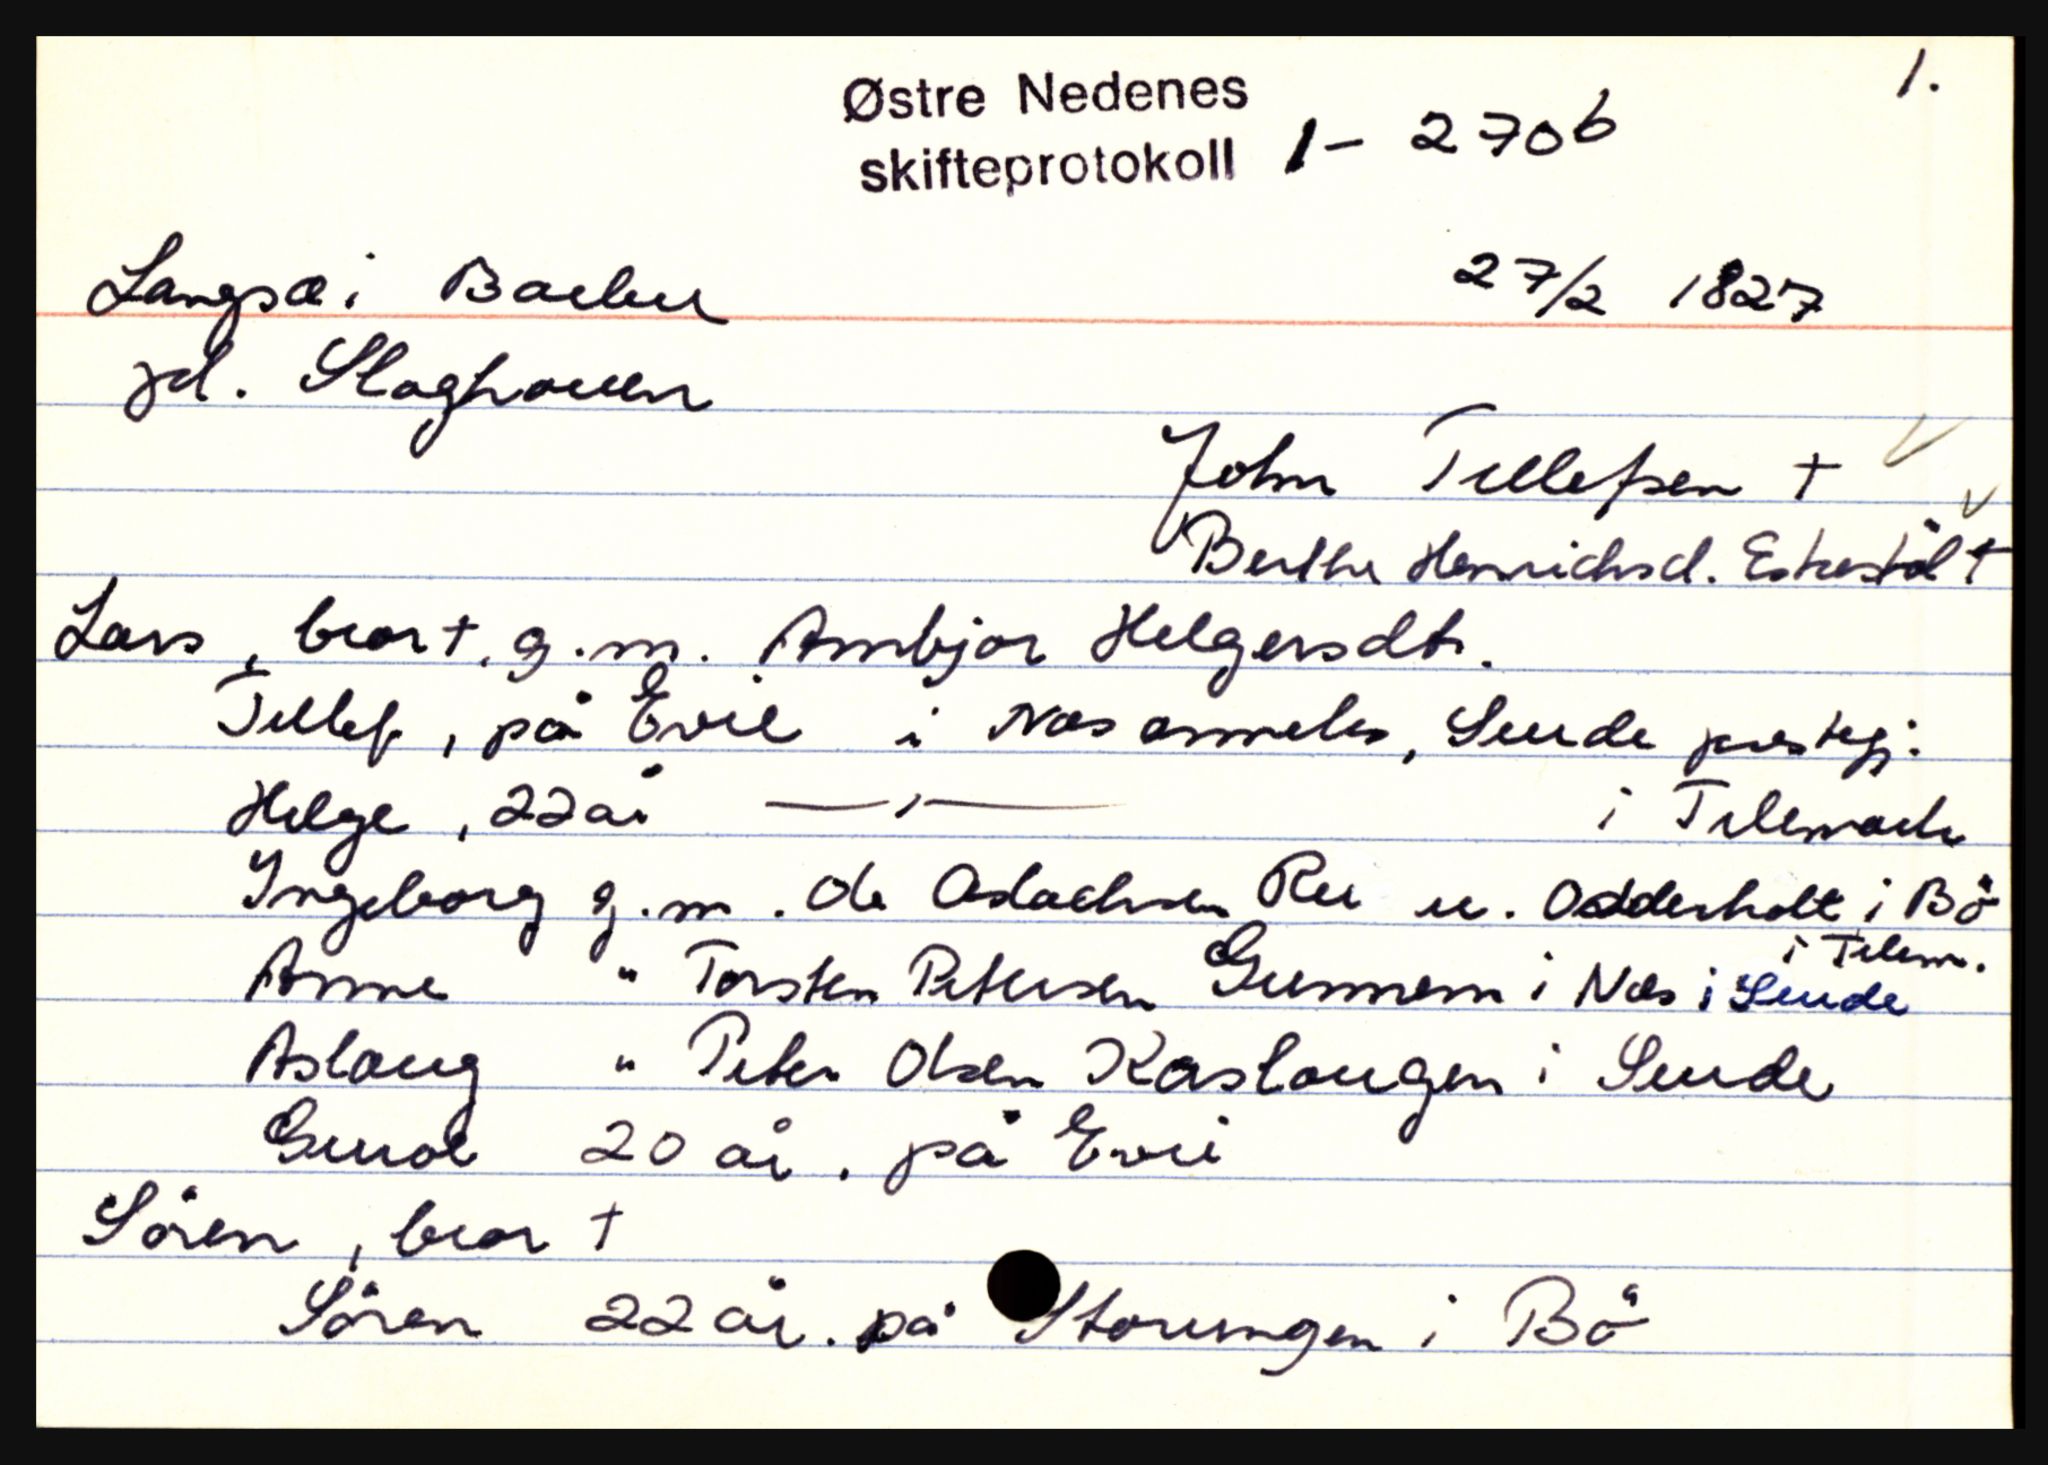 1.
Østre Nedenes
skifteprotokoll 1 - 270b
Langsæi Bælen 27/2 1827
pl. Slaghaven
John Tellefsen †
Berthe Henrichsd. Eskestöl †
Lars, bror †. g.m. Ambjor Helgersdtr.
Tellef, på Evie i Næs anneks, Seude prestegj:
Helge, 22 år —〃— i Telemark
Ingeborg g.m. Ole Aslachsen Ru u. Odderholt i Bö
i Telem.
Anne " Torsten Petersen Gunnem i Næs i Seude
Aslaug " Peter Olsen Kaslaugen i Seude
Guroe 20 år. på Evie
Sören, bror †
Sören 22 år. på Storungen i Bö